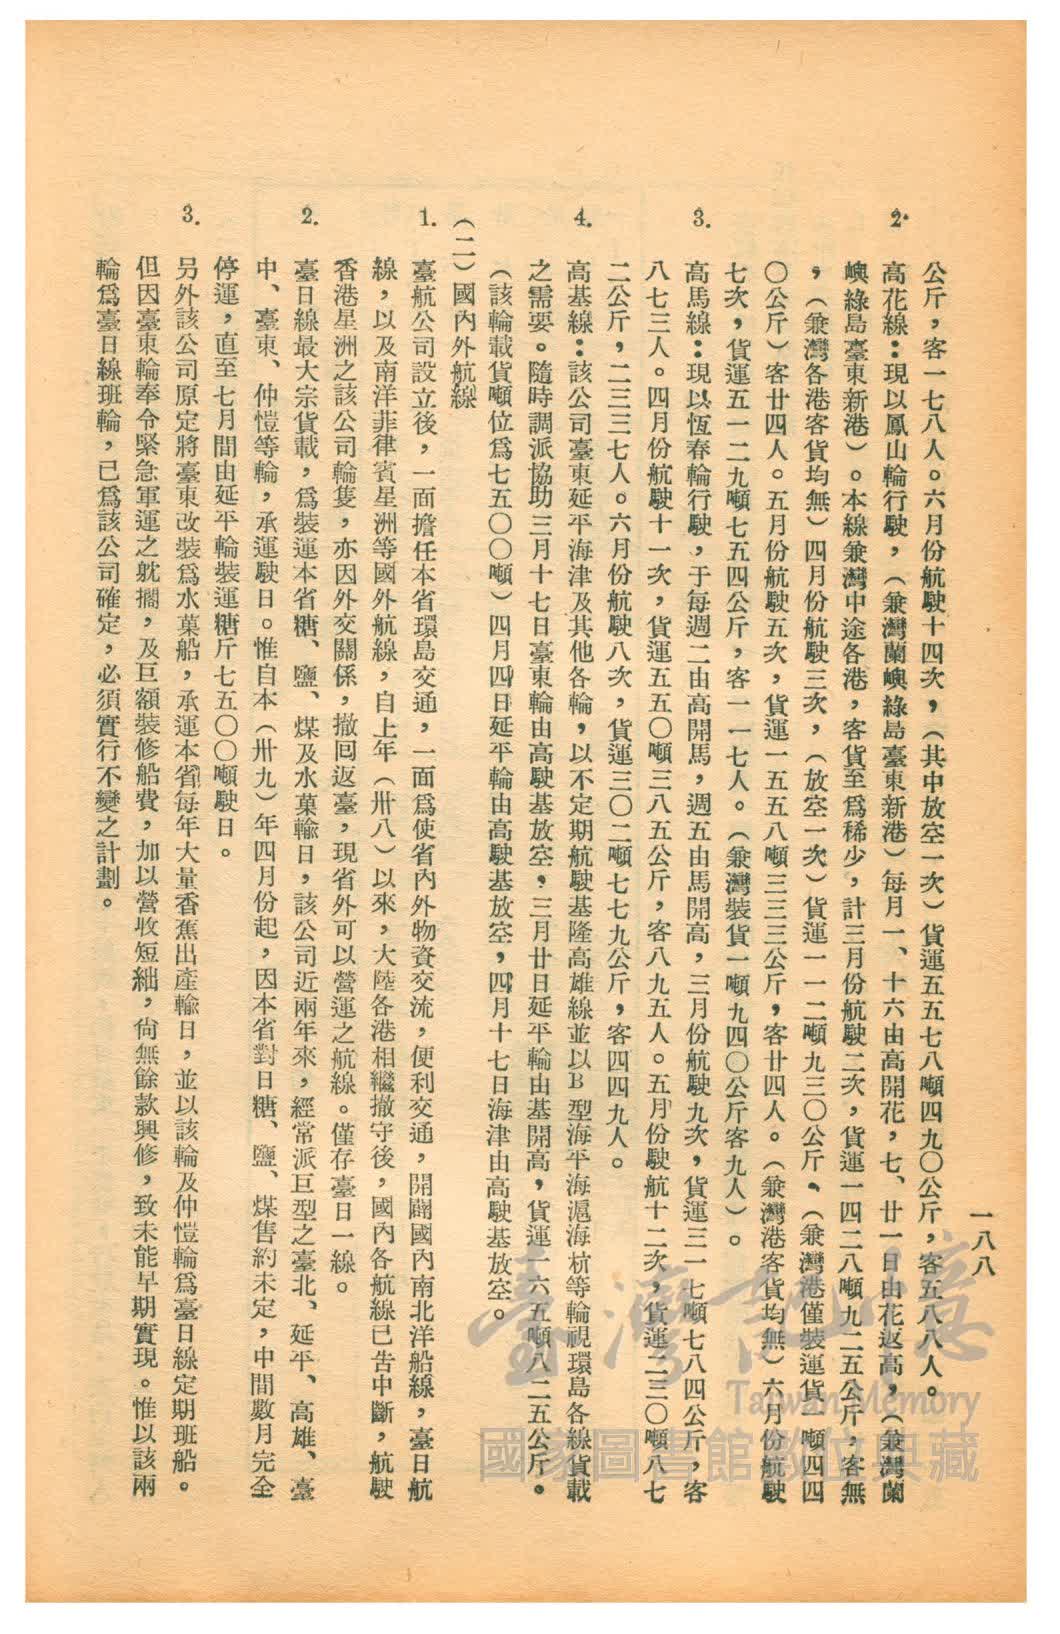 一八八
公斤，客一七八人。六月份航駛十四次，（其中放空一次）貨運五五七八噸四九〇公斤，客五八八人。
2. 高花線：現以鳳山輪行駛，（兼灣蘭嶼綠島臺東新港）每月一、十六由高開花，七、廿一日由花返高，（兼灣蘭
嶼綠島臺東新港）。本線兼灣中途各港，客貨至為稀少，計三月份航駛二次，貨運一四二八噸九二五公斤，客無
，（兼灣各港客貨均無）四月份航駛三次，（放空一次）貨運一一二噸九三〇公斤。（兼灣港僅裝運貨一噸四四
〇公斤）客廿四人。五月份航駛五次，貨運一五五八噸三三三公斤，客廿四人。（兼灣港客貨均無）六月份航駛
七次，貨運五一二九噸七五四公斤，客一一七人。（兼灣裝貨一噸九四〇公斤客九人）。
3. 高馬線：現以恆春輪行駛，于每週二由高開馬，週五由馬開高，三月份航駛九次，貨運三一七噸七八四公斤，客
八七三人。四月份航駛十一次，貨運五五〇噸三八五公斤，客八九五人。五月份駛航十二次，貨運二三〇噸八七
二公斤，二三三七人。六月份航駛八次，貨運三〇二噸七七九公斤，客四四九人。
4. 高基線：該公司臺東延平海津及其他各輪，以不定期航駛基隆高雄線並以B型海平海滬海杭等輪視環島各線貨載
之需要。隨時調派協助三月十七日臺東輪由高駛基放空，三月廿日延平輪由基開高，貨運一六五噸八二五公斤。
（該輪載貨噸位為七五〇〇噸）四月四日延平輪由高駛基放空，四月十七日海津由高駛基放空。
（二）國內外航線
1. 臺航公司設立後，一面擔任本省環島交通，一面為使省內外物資交流，便利交通，開闢國內南北洋船線，臺日航
線，以及南洋菲律賓星洲等國外航線，自上年（卅八）以來，大陸各港相繼撤守後，國內各航線已告中斷，航駛
香港星洲之該公司輪隻，亦因外交關係，撤回返臺，現省外可以營運之航線。僅存臺日一線。
2. 臺日線最大宗貨載，為裝運本省糖、鹽、煤及水菓輸日，該公司近兩年來，經常派巨型之臺北、延平、高雄、臺
中、臺東、仲愷等輪，承運駛日。惟自本（卅九）年四月份起，因本省對日糖、鹽、煤售約未定，中間數月完全
停運，直至七月間由延平輪裝運糖斤七五〇〇噸駛日。
3. 另外該公司原定將臺東改裝為水菓船，承運本省每年大量香蕉出產輸日，並以該輪及仲愷輪為臺日線定期班船。
但因臺東輪奉令緊急軍運之躭擱，及巨額裝修船費，加以營收短絀，尚無餘款興修，致未能早期實現。惟以該兩
輪為臺日線班輪，已為該公司確定，必須實行不變之計劃。
臺灣記憶
Taiwan Memory
國家圖書館數位典藏